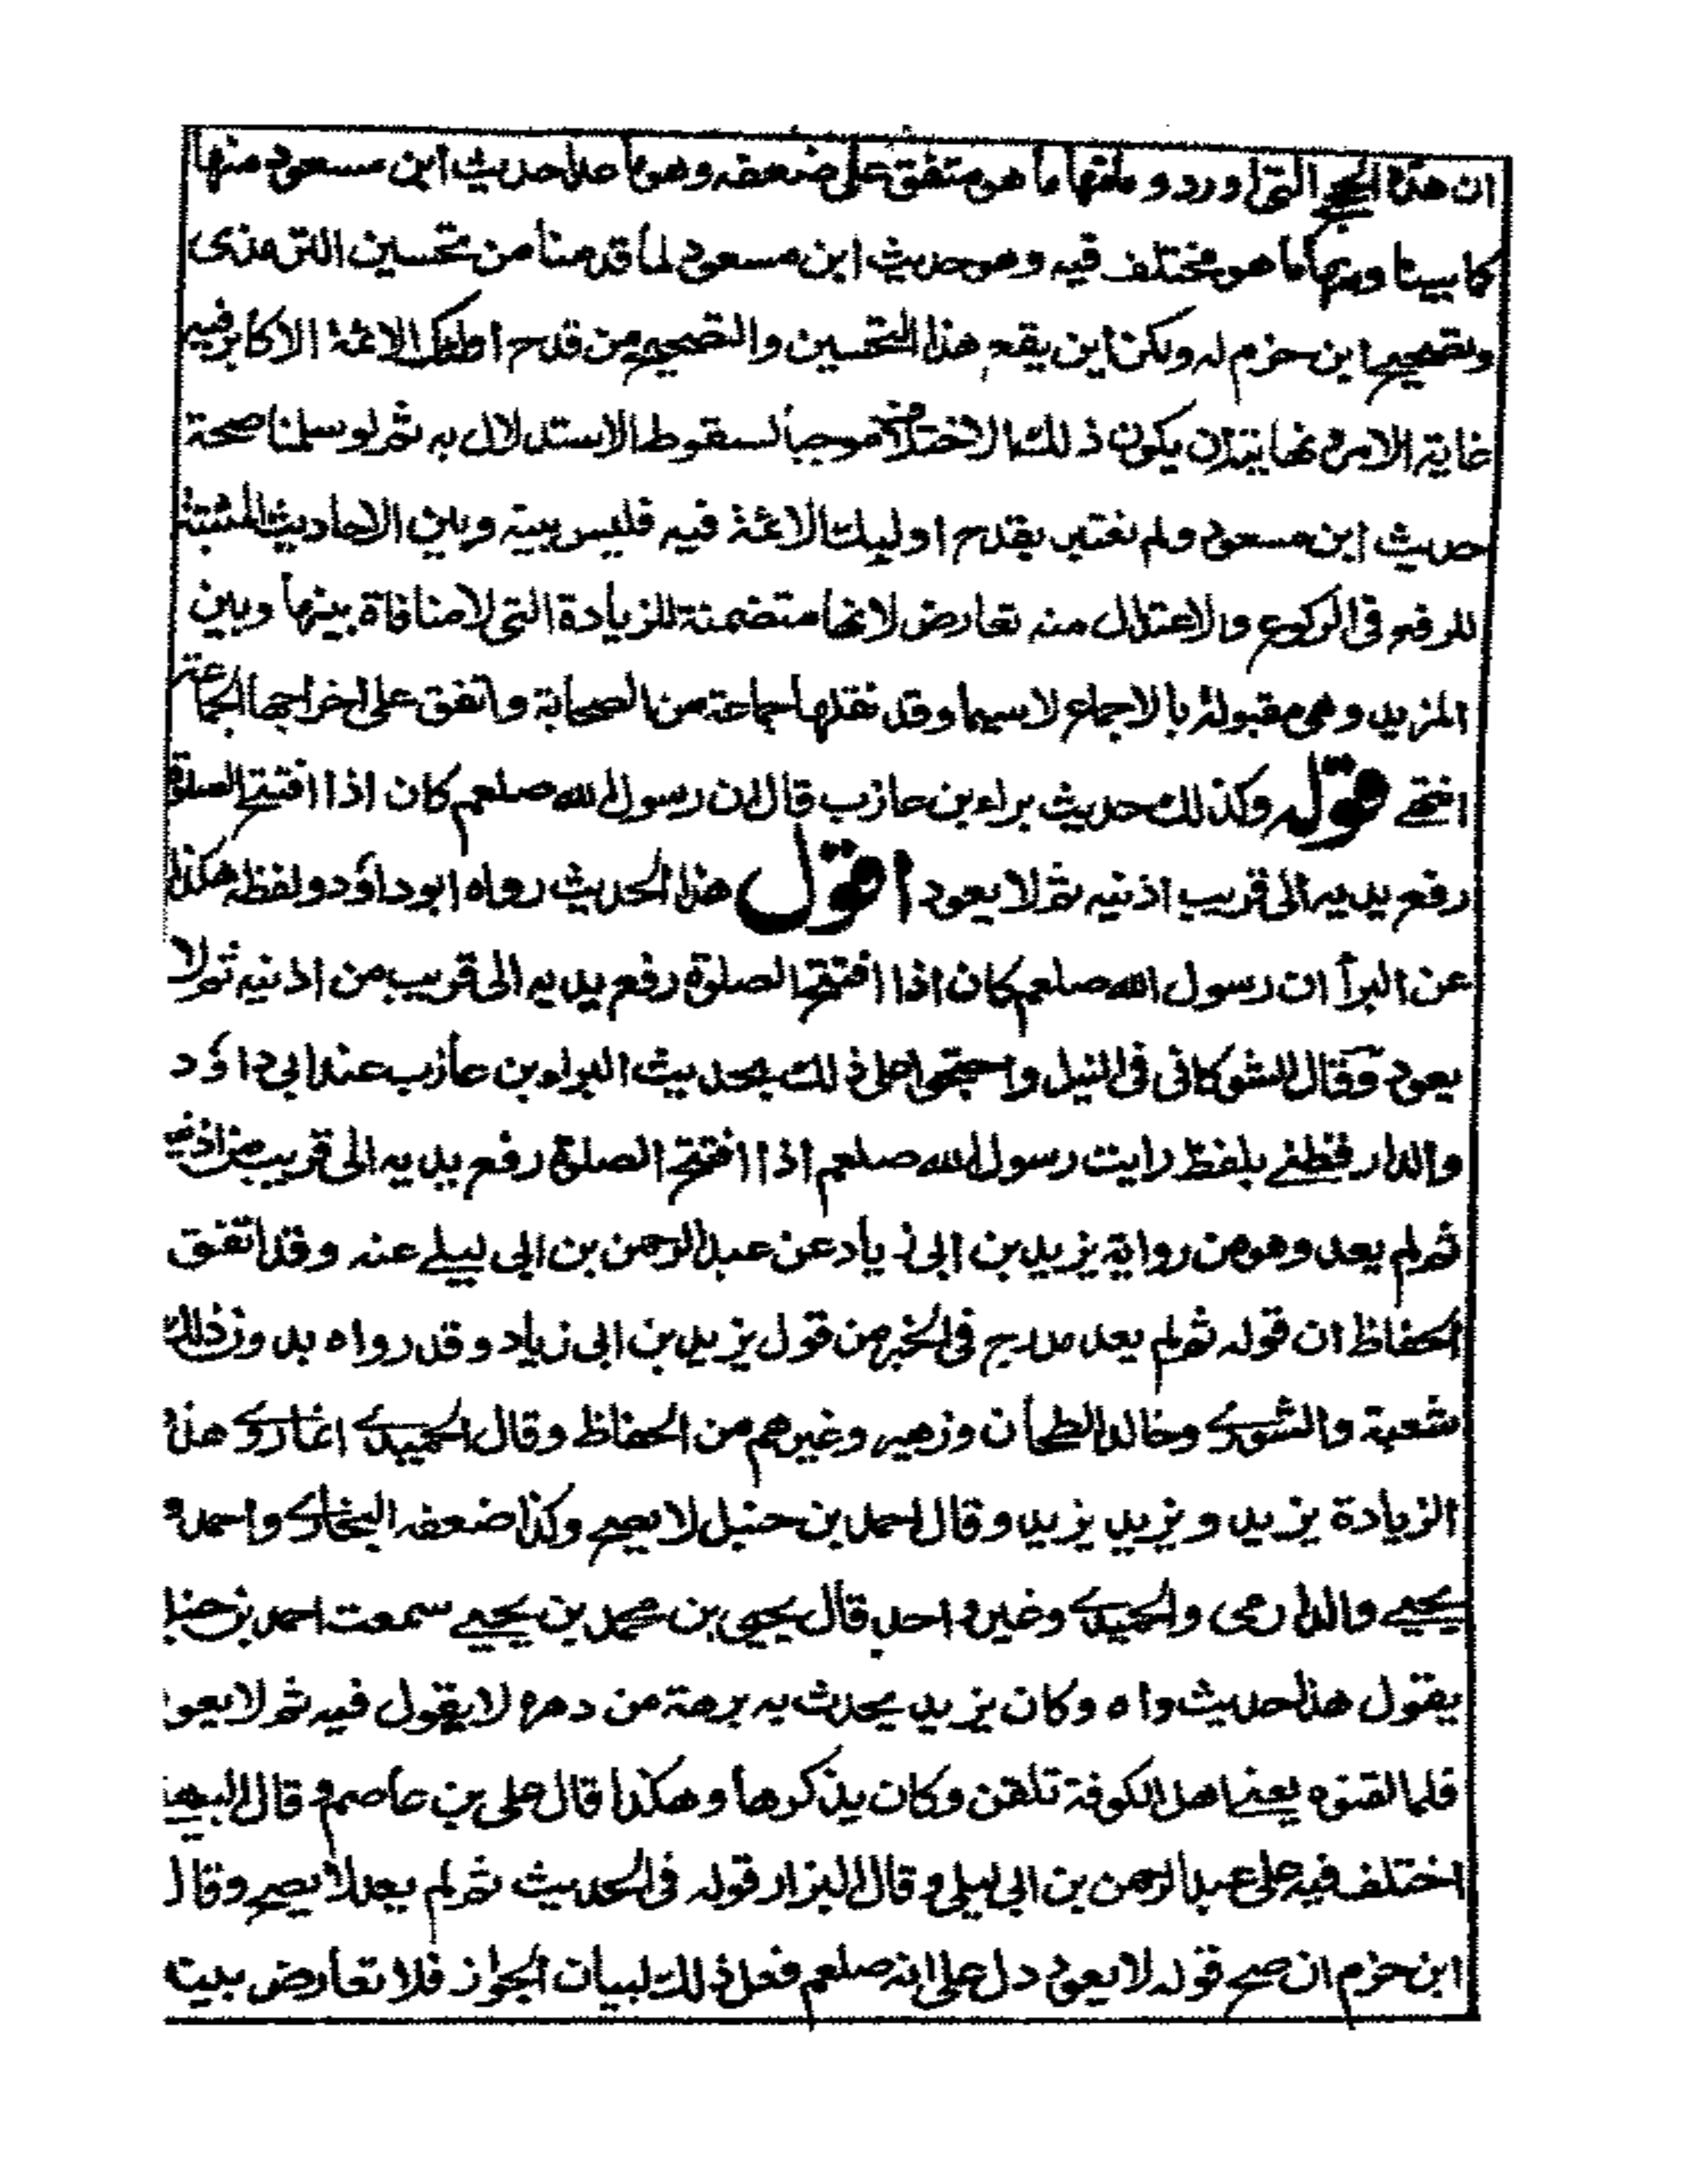 ان هذه الحجج التى اوردوها منها ما هو متفق على ضعفه وهو ما عدا حديث ابن مسعود منها
كما بينا ومنها ما هو مختلف فيه وهو حديث ابن مسعود لما قدمنا من تحسين الترمذى
وتصحيح ابن حزم له ولكن اين يقع هذا التحسين والتصحيح من قدح اولئك الائمة الاكابر فيه
غاية الامر ونهايته ان يكون ذلك الاختلاف موجبا لسقوط الاستدلال به ثم لو سلمنا صحة
حديث ابن مسعود ولم نعتبر بقدح اوليك الائمة فيه فليس بينه وبين الاحاديث المثبتة
للرفع فى الركوع والاعتدال منه تعارض لانها متضمنة للزيادة التى لا منافاة بينها وبين
المزيد وهى مقبولة بالاجماع لاسيما وقد نقلها جماعة من الصحابة واتفق على اخراجها الجماعة
انتهے قوله وكذلك حديث براء بن عازب قال ان رسول الله صلعم كان اذا افتتح الصلوة
رفع يديه الى قريب اذنيه ثم لا يعود اقول هذا الحديث رواه ابوداؤد ولفظه هكذا
عن البرأ ان رسول الله صلعم كان اذا افتتح الصلوة رفع يديه الى قريب من اذنيه ثم لا
يعود وقال الشوكانى فى النيل واحتجوا على ذلك بحديث البراء بن عازب عند ابى داؤد
والدارقطنے بلفظ رايت رسول الله صلعم اذا افتتح الصلوة رفع يديه الى قريب من اذنيه
ثم لم يعد وهو من رواية يزيد بن ابى زياد عن عبد الرحمن بن ابى ليلے عنه وقد اتفق
الحفاظ ان قوله ثم لم يعد مدرج فى الخبر من قول يزيد بن ابى زياد وقد رواه بدون ذلك
شعبة والثورے وخالد الطحان وزهير وغيرهم من الحفاظ وقال الحميدے انما روے هذه
الزيادة يزيد ويزيد يزيد وقال احمد بن حنبل لا يصح وكذا ضعفه البخارے واحمد و
يحيے والدارمى والحميدے وغير واحد قال يحيى بن محمد بن يحيے سمعت احمد بن حنبل
يقول هذا حديث واه وكان يزيد يحدث به برهة من دهره لا يقول فيه ثم لا يعود
فلما لقنوه يعنے اهل الكوفة تلقن وكان يذكرها وهكذا قال على بن عاصم وقال البيهقے
اختلف فيه على عبد الرحمن بن ابى ليلى وقال البزار قوله فى الحديث ثم لم يعد لا يصح وقال
ابن حزم ان صح قوله لا يعود دل على انه صلعم فعل ذلك لبيان الجواز فلا تعارض بينه